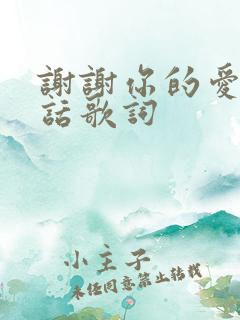 謝謝你的愛
話歌詞
小主子
未经同意禁止转载